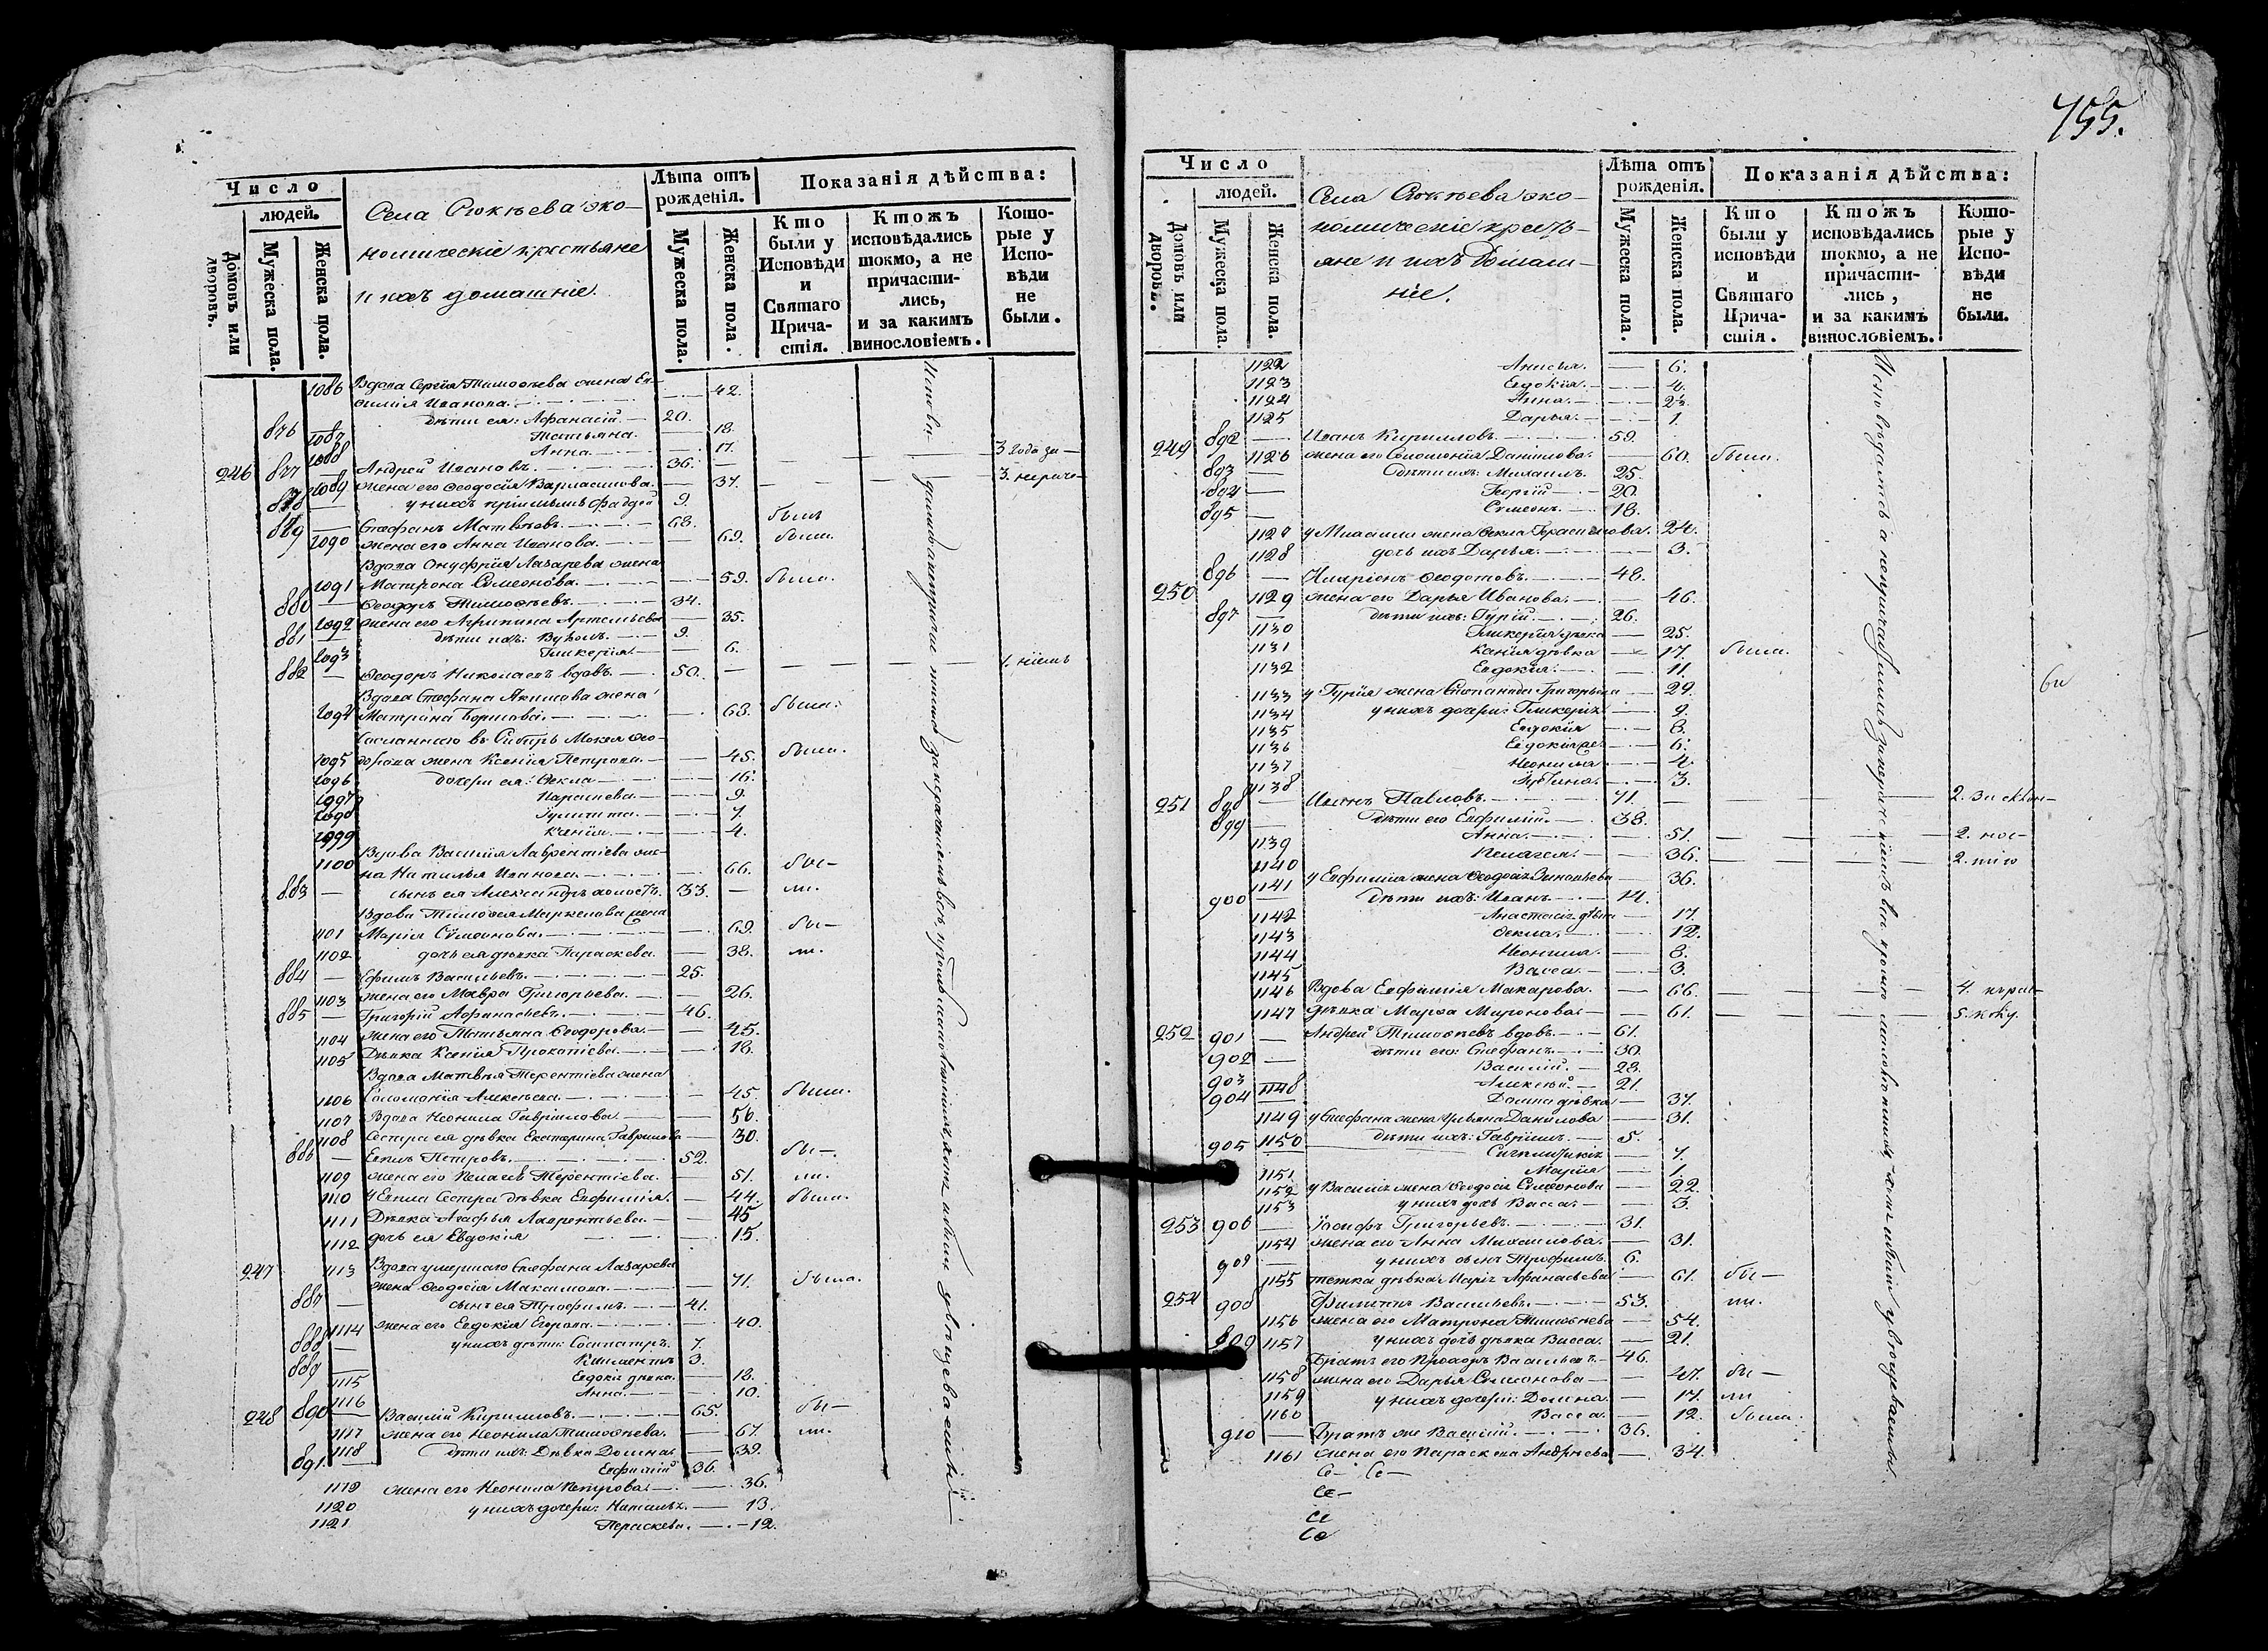 755.
Число
людей.
Домовъ или дворовъ.
Мужеска пола.
Женска пола.
Села Сюкѣева эко-
номическіе крестьяне
и ихъ домашніе.
Лѣта отъ рожденія.
Мужеска пола.
Женска пола.
Показанія дѣйства:
Кто были у Исповѣди и Святаго Причастія.
Ктожъ исповѣдались токмо, а не причасти-лись, и за какимъ винословіемъ.
Кото-рые у Испо-вѣди не были.
1086 Вдова Сергія Тимоѳеева жена Ев-
фимія Иванова. 42.
876 дѣти ея: Аѳанасій. 20.
1087 Татьяна. 18.
1088 Анна. 17.
246 877 Андрей Ивановъ. 36.
1089 жена его Ѳеодосія Варламова. 37.
878 у нихъ пріимышъ Фаддей 9.
879 Стефанъ Матвѣевъ. 68. былъ
1090 жена его Анна Иванова. 69. была.
Вдова Онуфрія Лазарева жена
1091 Матрона Сѵмеонова. 59. была.
880 Ѳеодоръ Тимоѳеевъ. 34.
1092 жена его Агрипина Артемьева 35.
881 дѣти ихъ: Вуколъ. 9.
1093 Гликерія. 6.
882 Ѳеодоръ Николаевъ вдовъ. 50.
Вдова Стефана Акимова жена
1094 Матрона Борисова. 68. была.
Сосланнаго въ Сибирь Мокея Ѳео-
1095 дорова жена Ксенія Петрова. 45. была.
1096 дочери ея: Ѳекла 16.
1097 Параскева. 9.
1098 Іулитта. 7.
1099 Ксенія. 4.
Вдова Василія Лаврентіева же-
1100 на Наталья Иванова. 66. бы-
883 сынъ ея Александръ холостъ. 33. ли.
Вдова Тимоѳея Маркелова жена
1101 Марія Сѵмеонова. 69. бы-
1102 дочь ея дѣвка Параскева. 38. ли.
884 Ефимъ Васильевъ. 25.
1103 жена его Мавра Григорьева. 26.
885 Григорій Аѳанасьевъ. 46.
1104 жена его Татьяна Ѳеодорова. 45.
1105 Дѣвка Ксенія Прокопіева. 18.
Вдова Матвѣя Терентіева жена
1106 Соломонія Алексѣева. 45. была.
1107 Вдова Неонила Гавріилова. 56.
1108 Сестра ея дѣвка Екатерина Гаврилова 30.
886 Евпилъ Петровъ. 52. бы-
1109 жена его Пелагея Терентіева. 51. ли.
1110 у Евпла сестра дѣвка Евфимія. 44. была.
1111 Дѣвка Агафья Лаврентьева. 45
1112 дочь ея Евдокія 15.
247 1113 Вдова умершаго Стефана Лазарева
жена Ѳеодосія Максимова. 71. была.
887 сынъ ея Трофимъ. 41.
1114 жена его Евдокія Егорова. 40.
888 у нихъ дѣти: Сосипатръ. 7.
889 Климентъ 3.
1115 Евдокія дѣвка. 18.
1116 Анна. 10.
248 890 Василій Кирилловъ. 65. бы-
1117 жена его Неонила Тимоѳеева. 67. ли.
1118 дѣти ихъ: Дѣвка Домна. 39.
891. Евфимій 36.
1119 жена его Неонила Петрова. 36.
1120 у нихъ дочери: Наталья. 13.
1121 Параскева. 12.
Число
людей.
Домовъ или дворовъ.
Мужеска пола.
Женска пола.
Села Сюкѣева эко-
номическіе кресть-
яне и ихъ домаш-
ніе.
Лѣта отъ рожденія.
Мужеска пола.
Женска пола.
Показанія дѣйства:
Кто были у исповѣди и Святаго Прича-стія.
Ктожъ исповѣдались токмо, а не причасти-лись, и за какимъ винословіемъ.
Кото-рые у Испо-вѣди не были.
1122 Анисья. 6.
1123 Евдокія. 4.
1124 Анна.
1125 Дарья. 1.
249 892 Иванъ Кирилловъ. 59.
1126 жена его Соломонія Данилова. 60. была.
893 дѣти ихъ: Михаилъ. 25.
894 Георгій 20.
895 Сѵмеонъ. 18.
1127 у Михаила жена Ѳекла Герасимова. 24.
1128 дочь ихъ Дарья. 3.
250 896 Иларіонъ Ѳеодотовъ. 48.
1129 жена его Дарья Иванова. 46.
897 дѣти ихъ: Гурій. 26.
1130 Гликерія дѣвка 25.
1131 Ксенія дѣвка 17. была.
1132 Евдокія. 11.
1133 у Гурія жена Степанида Григорьева 29.
1134 у нихъ дочери: Гликерія. 9.
1135 Евдокія 8.
1136 Евдокія же. 6.
1137 Неонила 4.
1138 3.
251 898 Иванъ Павловъ. 71.
899 дѣти его Евфимій. 38.
1139 Анна. 51.
1140 Пелагея. 36.
1141 у Евфимія жена Ѳеодосія Зиновьева 36.
900 дѣти ихъ: Иванъ 14.
1142 Анастасія дѣвка 17.
1143 Ѳекла. 12.
1144 Неонила. 8.
1145 Васса. 3.
1146 Вдова Евфимія Макарова. 66.
1147 дѣвка Марѳа Миронова. 61.
252 901 Андрей Тимоѳеевъ вдовъ. 61.
902 дѣти его: Стефанъ. 30.
903 Василій. 28.
904 Алексѣй. 21.
1148 Домна дѣвка 37.
1149 у Стефана жена Ульяна Данилова 31.
905 1150 дѣти ихъ: Гавріилъ. 5.
7.
1151 Марія 1.
1152 у Василія жена Ѳеодосія Сѵмеонова 22.
1153 у нихъ дочь Васса. 3.
253 906 Іосифъ Григорьевъ. 31.
1154 жена его Анна Михаилова. 31.
907 у нихъ сынъ Трофимъ. 6.
1155 тетка дѣвка Марія Аѳанасьева 61. бы-
254 908 Филиппъ Васильевъ. 53. ли.
1156 жена его Матрона Тимоѳеева 54.
909 1157 у нихъ дочь дѣвка Васса. 21.
Братъ его Прохоръ Васильевъ. 46.
1158 жена его Дарья Симонова 47. бы-
1159 у нихъ дочери: Домна. 17. ли
1160 Васса. 12. была.
910 Братъ же Василій. 36.
1161 жена его Параскева Андрѣева 34.